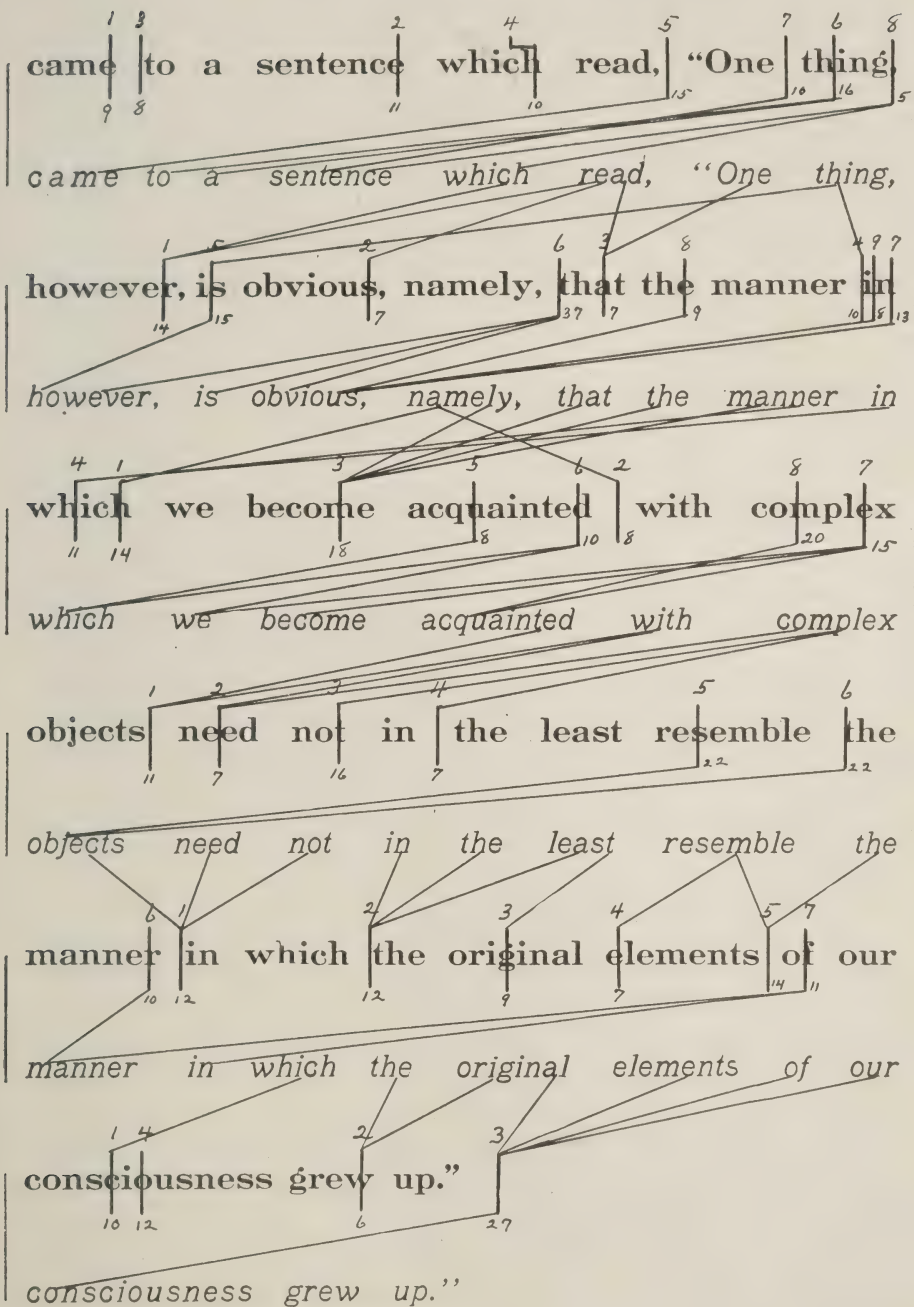 1 3 2 4 5 7 6 8
came to a sentence which read, “One thing,
9 8 11 10 15 10 16 5
came to a sentence which read, “One thing,
1 5 2 6 3 8 4 9 7
however, is obvious, namely, that the manner in
14 15 7 37 7 9 10 8 13
however, is obvious, namely, that the manner in
4 1 3 5 6 2 8 7
which we become acquainted with complex
11 14 18 8 10 8 20 15
which we become acquainted with complex
1 2 3 4 5 6
objects need not in the least resemble the
11 7 16 7 22 22
objects need not in the least resemble the
6 1 2 3 4 5 7
manner in which the original elements of our
10 12 12 9 7 14 11
manner in which the original elements of our
1 4 2 3
consciousness grew up.”
10 12 6 27
consciousness grew up.”